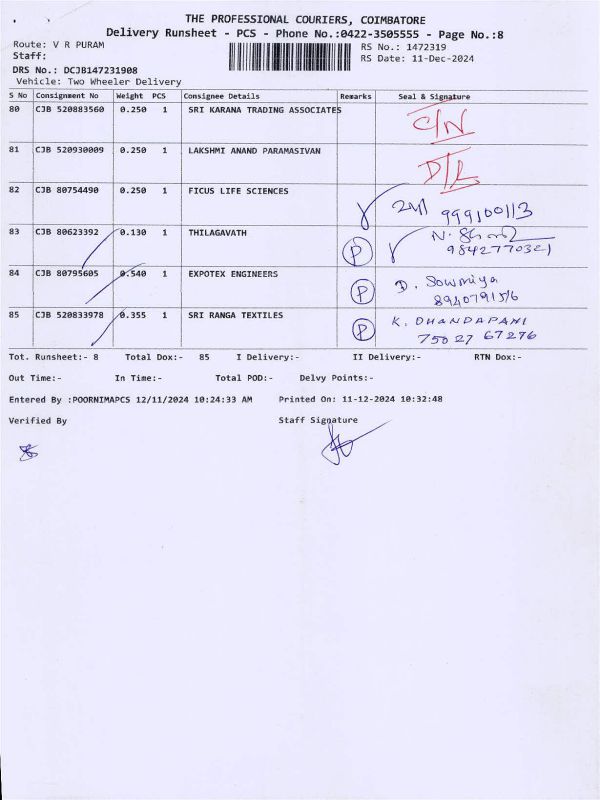 THE PROFESSIONAL COURIERS, COIMBATORE
Delivery Runsheet - PCS - Phone No.:0422-3505555 - Page No.:8
Route: V R PURAM
RS No.: 1472319
Staff:
RS Date: 11-Dec-2024
DRS No.: DCJB147231908
Vehicle: Two Wheeler Delivery
S No Consignment No Weight PCS Consignee Details Remarks Seal & Signature
80 CJB 520883560 0.250 1 SRI KARANA TRADING ASSOCIATES C/N
81 CJB 520930009 0.250 1 LAKSHMI ANAND PARAMASIVAN D/L
82 CJB 80754490 0.250 1 FICUS LIFE SCIENCES
999100113
83 CJB 80623392 0.130 1 THILAGAVATH P N.
9842770321
84 CJB 80795605 0.540 1 EXPOTEX ENGINEERS P D. Sowmiya
8940791516
85 CJB 520833978 0.355 1 SRI RANGA TEXTILES P K. DHANDAPANI
75027 67276
Tot. Runsheet:- 8 Total Dox:- 85 I Delivery:- II Delivery:- RTN Dox:-
Out Time:- In Time:- Total POD:- Delvy Points:-
Entered By :POORNIMAPCS 12/11/2024 10:24:33 AM Printed On: 11-12-2024 10:32:48
Verified By Staff Signature